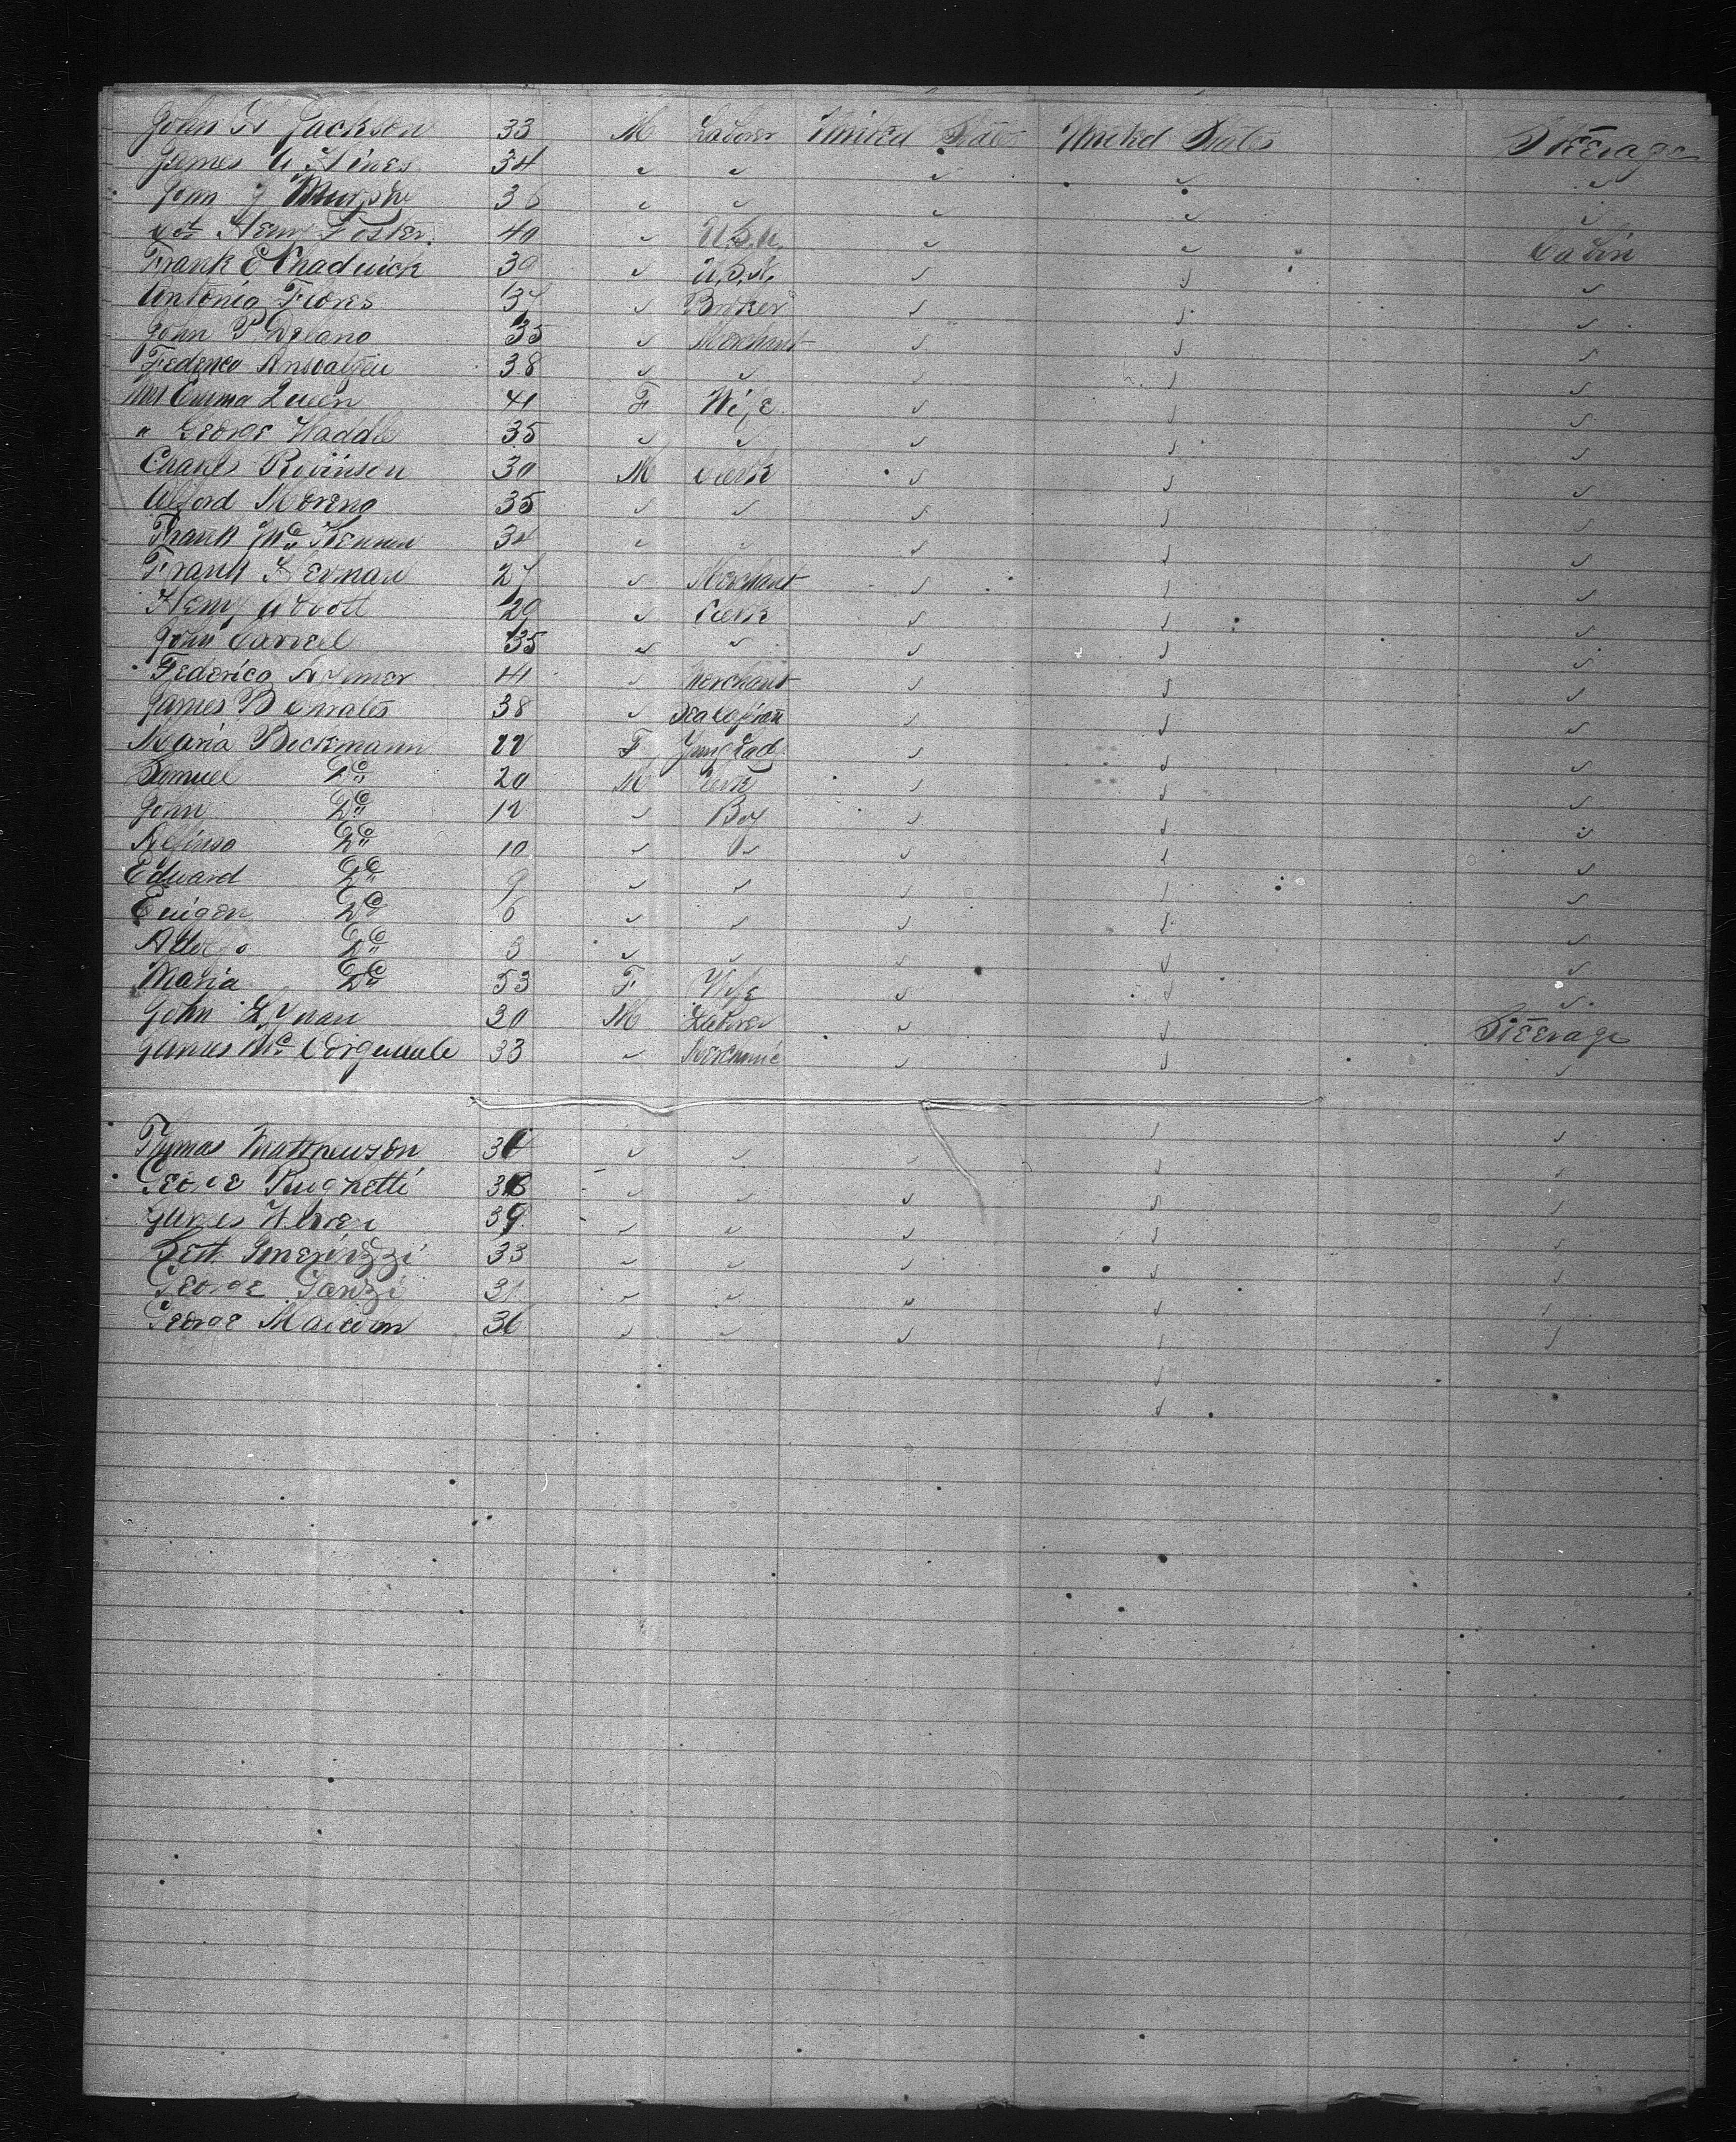 John H Jackson 33 M Laborer United States United States Steerage
James A Hines 34 " " " " "
John J Murphy 36 " " " " "
Henry Foster 40 " U.S.N. " " Cabin
Frank E Chadwick 39 " U.S.N. " " "
Antonio Flores 37 " Broker " " "
John P Delano 35 " Merchant " " "
Federico 38 " " " " "
Mrs Emma Queen 41 F Wife " " "
" George Waddle 35 " " " " "
Charles Robinson 30 M Clerk " " "
Alford Moreno 35 " " " " "
Frank Mc Kennon 34 " " " " "
Frank Herman 27 " Merchant " " "
Henry Abbott 29 " Clerk " " "
John Carrell 35 " " " " "
Federico 41 " Merchant " " "
James B 38 " Sea Captain " " "
Maria Beckmann 22 F Yung Lady " " "
Samuel Do 20 M Clerk " " "
John Do 12 " Boy " " "
Alfonso Do 10 " " " " "
Edward Do 9 " " " " "
Euigen Do 6 " " " " "
Adolfo Do 3 " " " " "
Maria Do 53 F Wife " " "
John 30 M Laborer " " Steerage
James Mc 33 " Mechanic " " "
Thomas Matthewson 34 " " " " "
George Rughetti 38 " " " " "
James 39 " " " " "
33 " " " " "
George Ganzi 31 " " " " "
George Malcolm 36 " " " " "